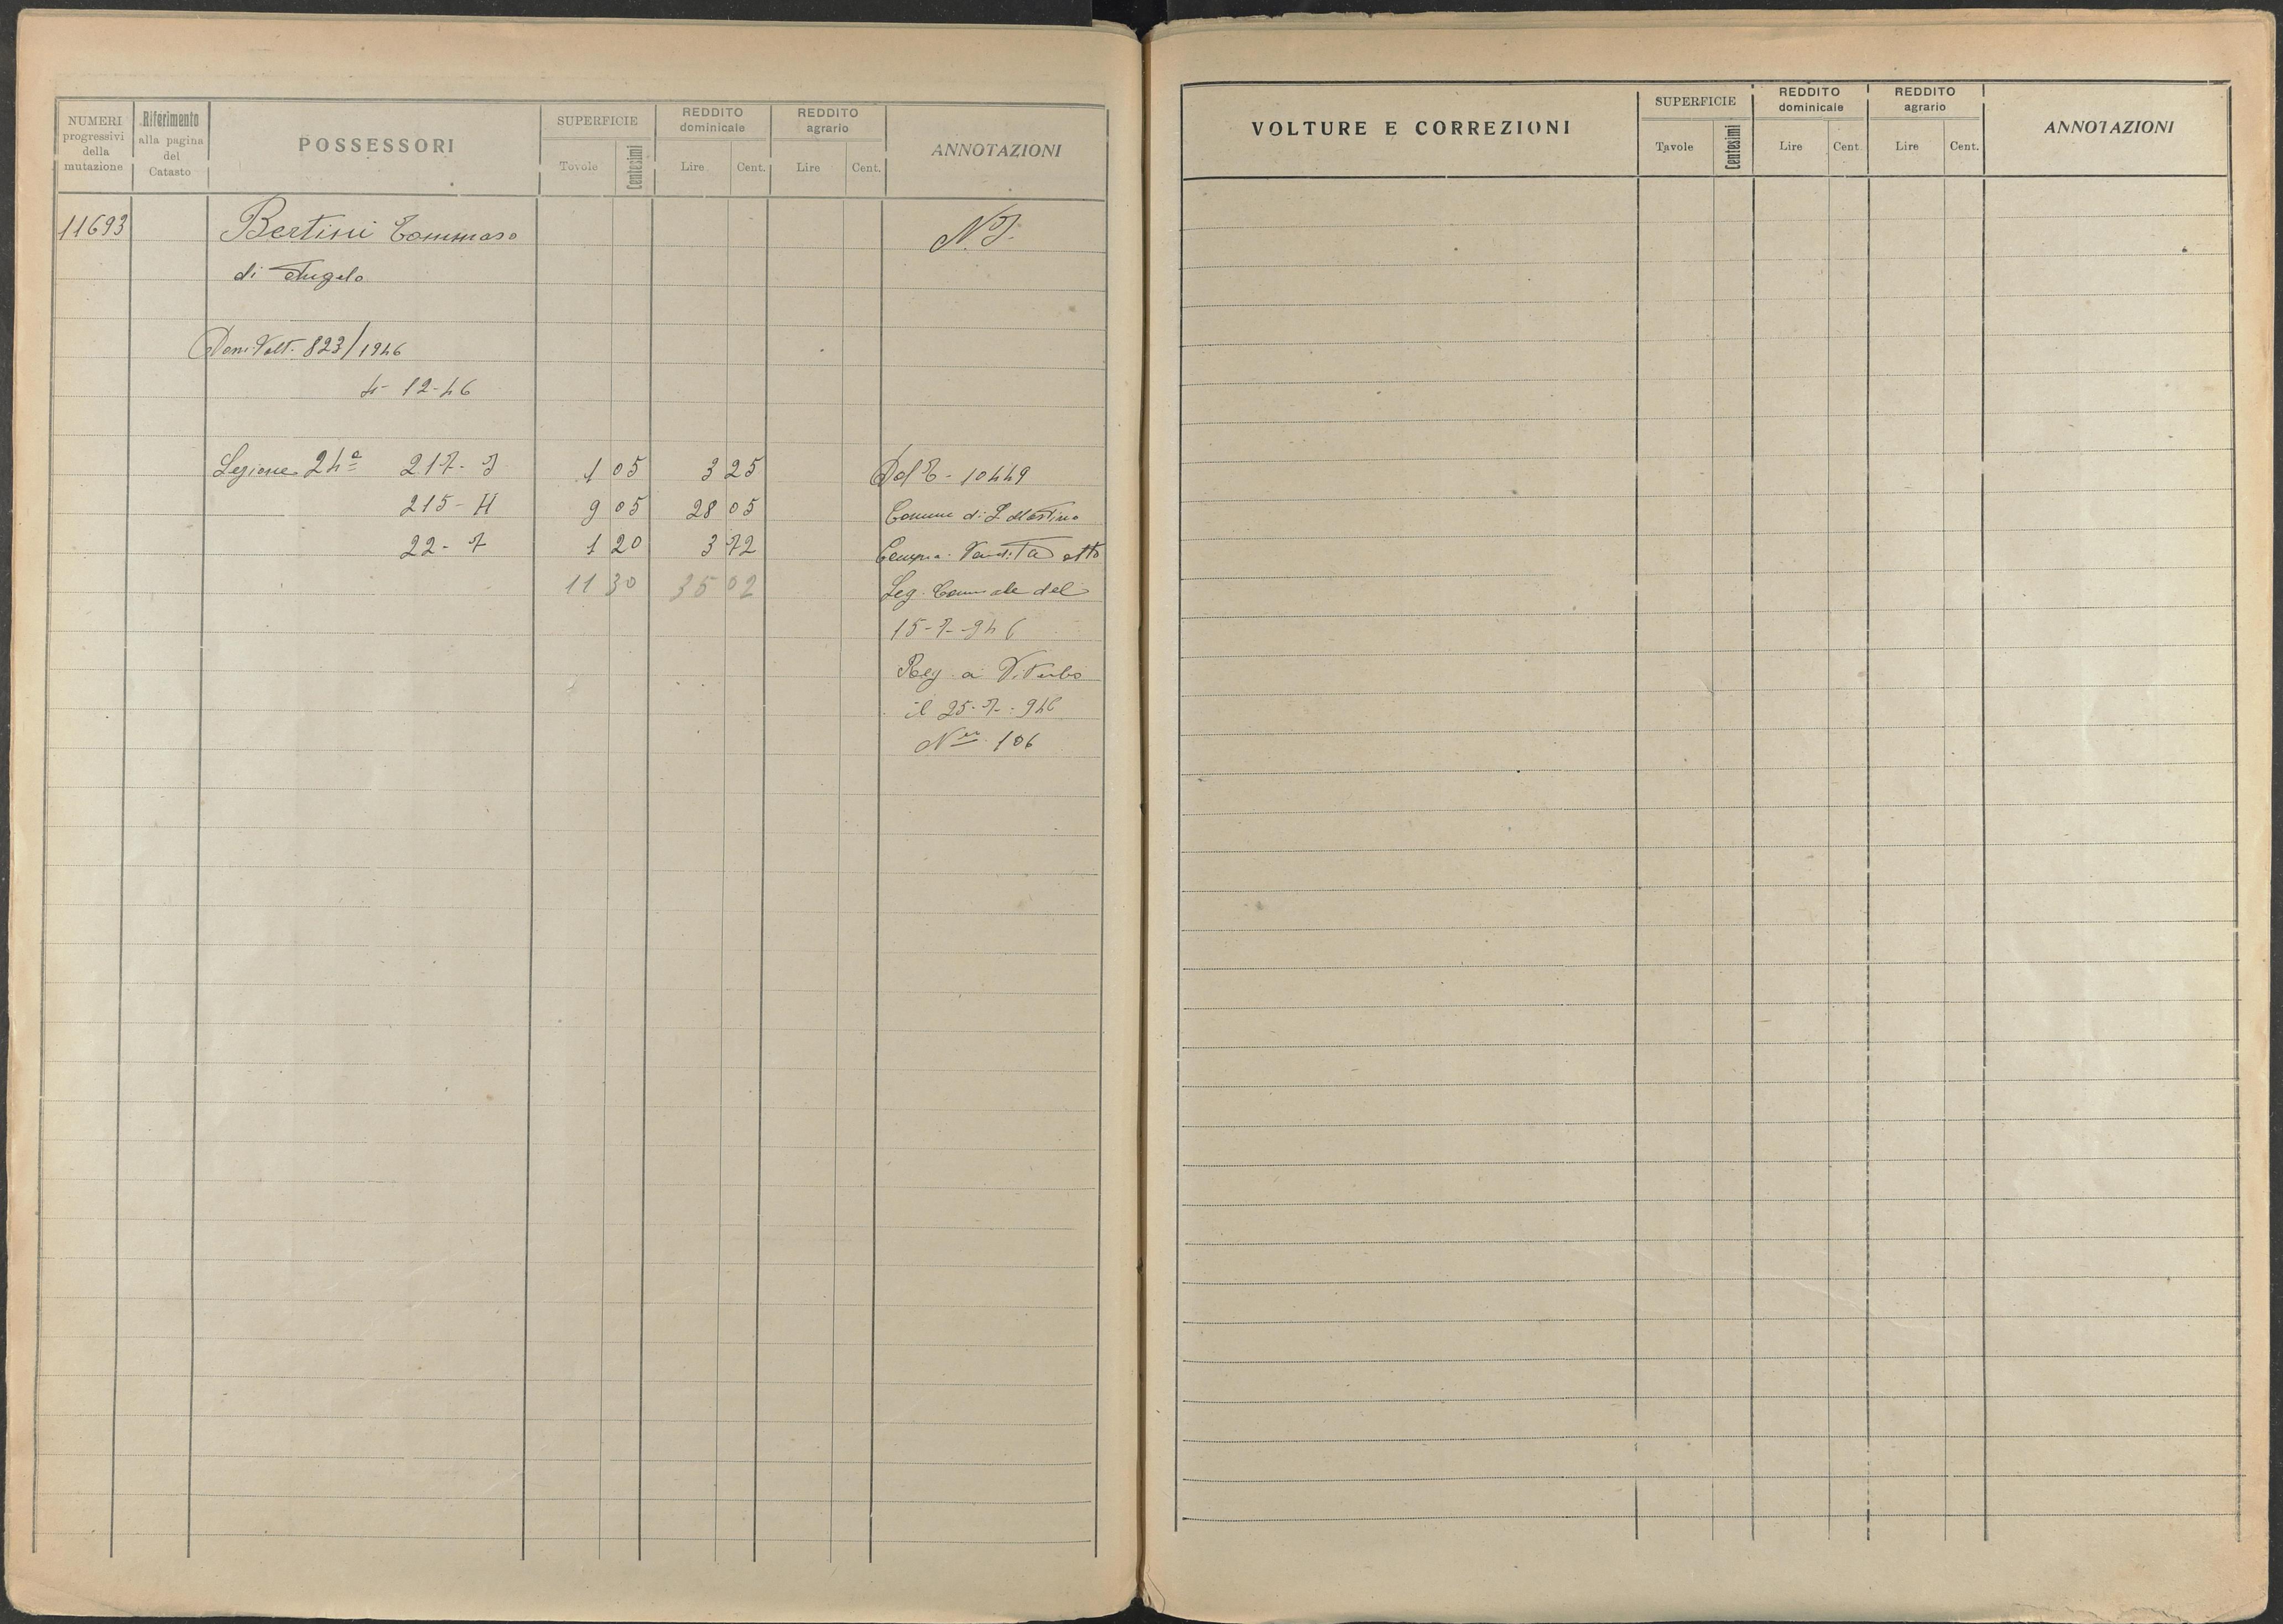 NUMERI progressivi della mutazione
Riferimento alla pagina del Catasto
POSSESSORI
SUPERFICIE
Tovole
Centesimi
REDDITO dominicale
Lire
Cent.
REDDITO agrario
Lire
Cent.
ANNOTAZIONI
11693 Bertini Tommaso
di Angelo
Dom. Volt. 823/1946
4-12-46
Sezione 24ª 217- 1 05 3 25 Dal 10449
215- 9 05 28 05 Comune di S. Martino
22- 1 20 3 72 Compra-Vendita atto
11 30 35 02 Seg. Comunale del
15-7-946
Reg. a Viterbo
il 25-7-946
106
VOLTURE E CORREZIONI
SUPERFICIE
Tavole
Centesimi
REDDITO dominicale
Lire
Cent.
REDDITO agrario
Lire
Cent.
ANNOTAZIONI